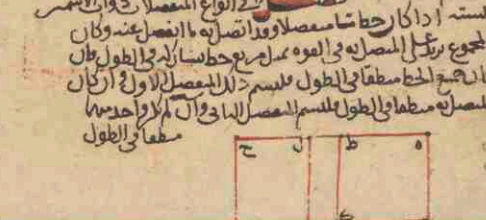 في انواع المنفصلات وان
الستة اذا كان خط ما منفصلا وقد اتصل به ما انفصل عنه وكان
المجموع يزيد على المتصل به في القوه بمثل مربع خط يشاركه في الطول فان
كان جميع الخط منطقا في الطول فليسم ذلك المنفصل الاول وان كان
المتصل به منطقا في الطول فليسم المنفصل الثاني وان لم يكن واحد منهما
منطقا في الطول
ح ل ط ه
ك